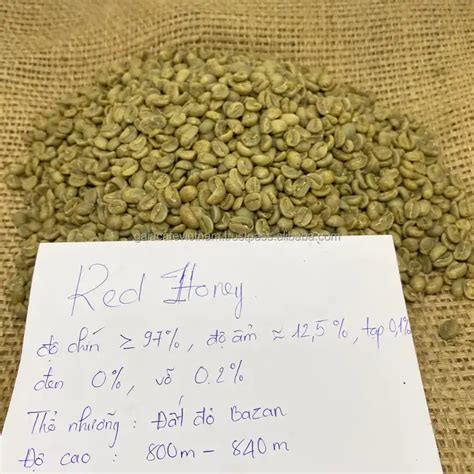 gaiacafevietnam.trustpass.alibaba.com
Red Honey
độ chín ≥ 97%, độ ẩm ≈ 12,5%, tạp 0,1%
đen 0%, vỡ 0.2%
Thổ nhưỡng : Đất đỏ Bazan
Độ cao : 800m - 840m